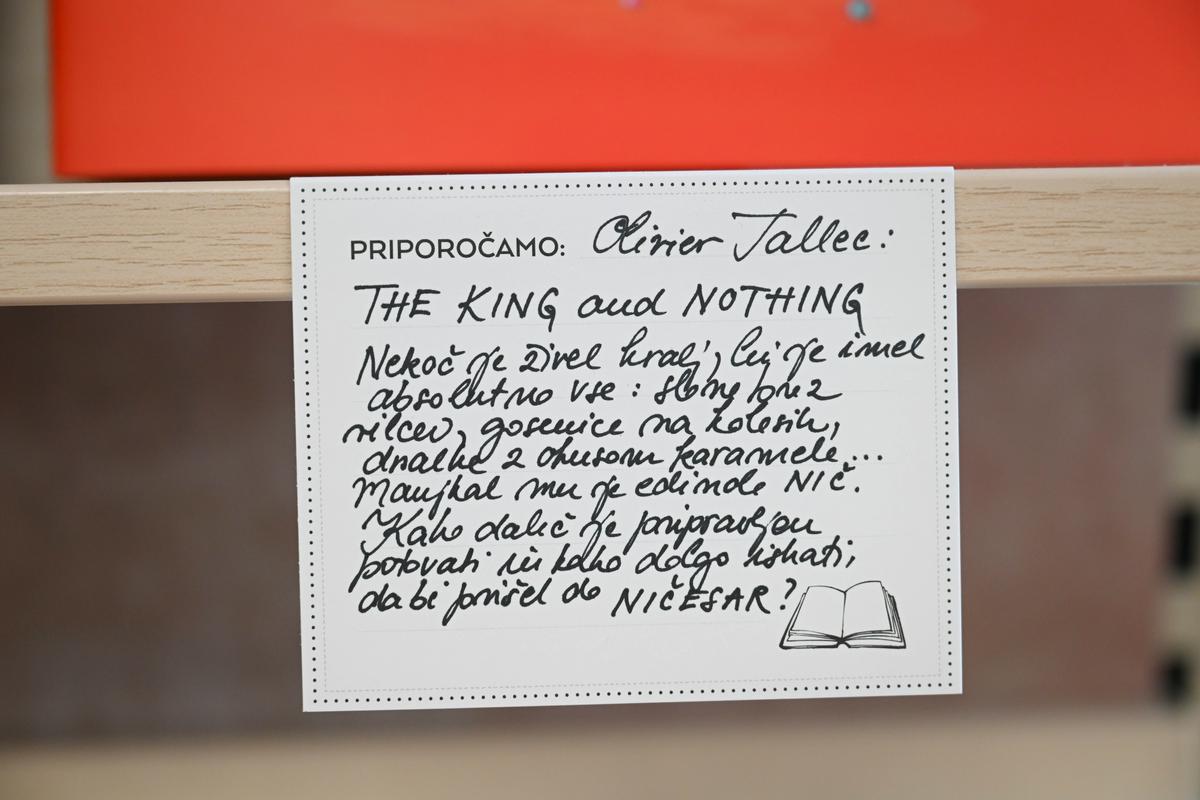 PRIPOROČAMO: Olivier Tallec:
THE KING and NOTHING
Nekoč je živel kralj, ki je imel
absolutno vse: slone brez
rilcev, gosenice na kolesih,
dnalke z okusom karamele...
Manjkal mu je edinole NIČ.
Kako daleč je pripravljen
potovati in kako dolgo iskati,
da bi prišel do NIČESAR?